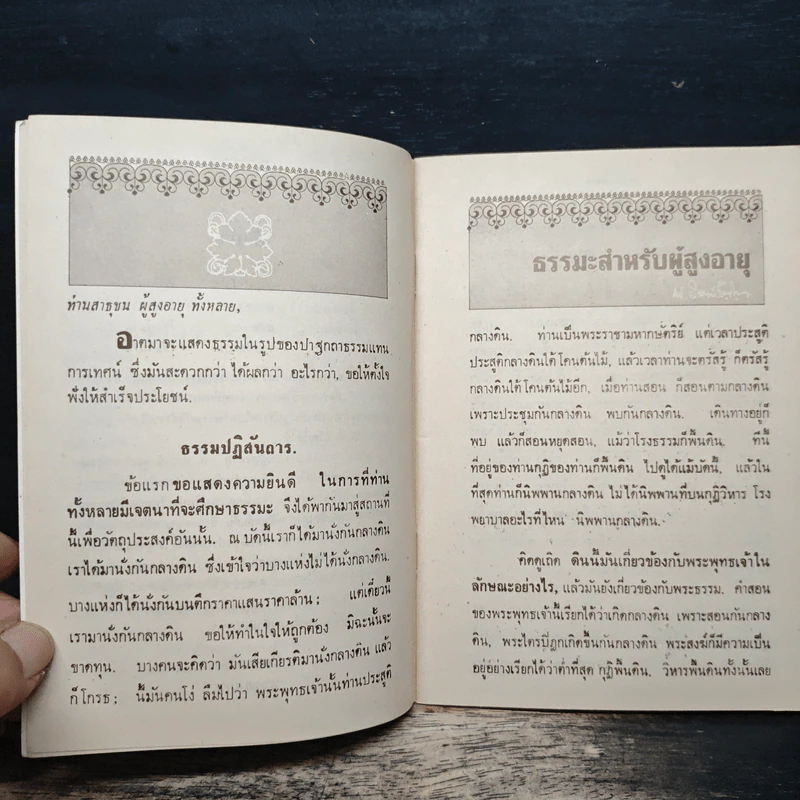 ท่านสาธุชน ผู้สูงอายุ ทั้งหลาย,
อาตมาจะแสดงธรรมในรูปของปาฐกถาธรรมแทน
การเทศน์ ซึ่งมันสะดวกกว่า ได้ผลกว่า อะไรกว่า, ขอให้ตั้งใจ
ฟังให้สำเร็จประโยชน์.
ธรรมปฏิสันถาร.
ข้อแรก ขอแสดงความยินดี ในการที่ท่าน
ทั้งหลายมีเจตนาที่จะศึกษาธรรมะ จึงได้พากันมาสู่สถานที่
นี้เพื่อวัตถุประสงค์อันนั้น. ณ บัดนี้เราก็ได้มานั่งกันกลางดิน
เราได้มานั่งกันกลางดิน ซึ่งเข้าใจว่าบางแห่งไม่ได้นั่งกลางดิน.
บางแห่งก็ได้นั่งกันบนตึกราคาแสนราคาล้าน; แต่เดี๋ยวนี้
เรามานั่งกันกลางดิน ขอให้ทำในใจให้ถูกต้อง มิฉะนั้นจะ
ขาดทุน. บางคนจะคิดว่า มันเสียเกียรติมานั่งกลางดิน แล้ว
ก็โกรธ; นี้มันคนโง่ ลืมไปว่า พระพุทธเจ้านั้นท่านประสูติ
ธรรมะสำหรับผู้สูงอายุ
กลางดิน. ท่านเป็นพระราชามหากษัตริย์ แต่เวลาประสูติ
ประสูติกลางดินใต้โคนต้นไม้, แล้วเวลาท่านจะตรัสรู้ ก็ตรัสรู้
กลางดินใต้โคนต้นไม้อีก, เมื่อท่านสอน ก็สอนตามกลางดิน
เพราะประชุมกันกลางดิน พบกันกลางดิน. เดินทางอยู่ก็
พบ แล้วก็สอนหยุดสอน, แม้ว่าโรงธรรมก็พื้นดิน. ทีนี้
ที่อยู่ของท่านกุฏิของท่านก็พื้นดิน ไปดูได้แม้บัดนี้. แล้วใน
ที่สุดท่านก็นิพพานกลางดิน ไม่ได้นิพพานที่บนกุฏิวิหาร โรง
พยาบาลอะไรที่ไหน นิพพานกลางดิน.
คิดดูเถิด ดินนี้มันเกี่ยวข้องกับพระพุทธเจ้าใน
ลักษณะอย่างไร, แล้วมันยังเกี่ยวข้องกับพระธรรม. คำสอน
ของพระพุทธเจ้านี้เรียกได้ว่าเกิดกลางดิน เพราะสอนกันกลาง
ดิน, พระไตรปิฎกเกิดขึ้นกันกลางดิน. พระสงฆ์ก็มีความเป็น
อยู่อย่างเรียกได้ว่าต่ำที่สุด กุฏิพื้นดิน. วิหารพื้นดินทั้งนั้นเลย